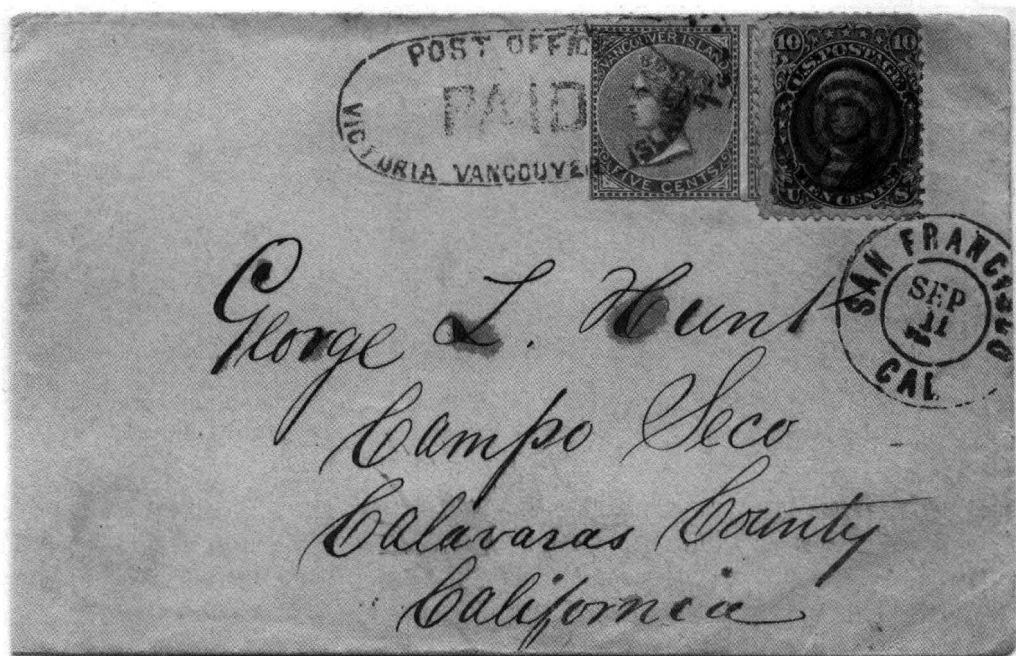 POST OFFIC
PAID
VICTORIA VANCOUVER
VANCOUVER ISLAND
FIVE CENTS
10 10
U.S. POSTAGE
TEN CENTS
U S
SAN FRANCISCO
SEP
11
CAL
George L. Hunt
Campo Seco
Calavaras County
California